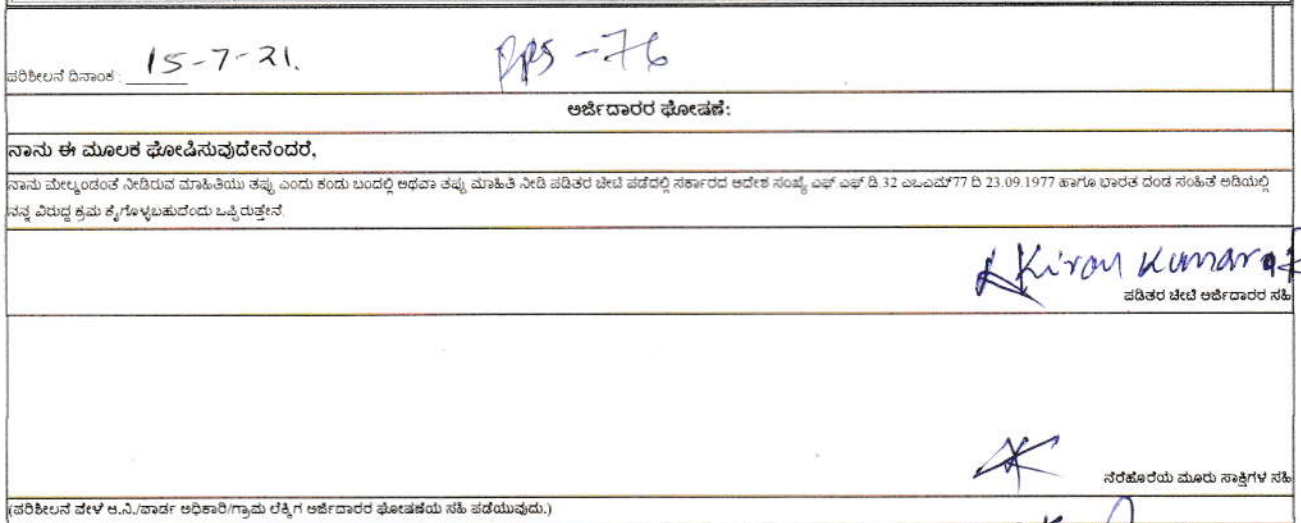 ಪರಿಶೀಲನೆ ದಿನಾಂಕ : 15-7-21. PPS-76
ಅರ್ಜಿದಾರರ ಘೋಷಣೆ:
ನಾನು ಈ ಮೂಲಕ ಘೋಷಿಸುವುದೇನೆಂದರೆ,
ನಾನು ಮೇಲ್ಕಂಡಂತೆ ನೀಡಿರುವ ಮಾಹಿತಿಯು ತಪ್ಪು ಎಂದು ಕಂಡು ಬಂದಲ್ಲಿ ಅಥವಾ ತಪ್ಪು ಮಾಹಿತಿ ನೀಡಿ ಪಡಿತರ ಚೀಟಿ ಪಡೆದಲ್ಲಿ ಸರ್ಕಾರದ ಆದೇಶ ಸಂಖ್ಯೆ ಎಫ್ ಎಫ್ ಡಿ.32 ಎಒಎಮ್77 ದಿ 23.09.1977 ಹಾಗೂ ಭಾರತ ದಂಡ ಸಂಹಿತೆ ಅಡಿಯಲ್ಲಿ
ನನ್ನ ವಿರುದ್ಧ ಕ್ರಮ ಕೈಗೊಳ್ಳಬಹುದೆಂದು ಒಪ್ಪಿರುತ್ತೇನೆ.
Kiran Kumar
ಪಡಿತರ ಚೀಟಿ ಅರ್ಜಿದಾರರ ಸಹಿ
ನೆರೆಹೊರೆಯ ಮೂರು ಸಾಕ್ಷಿಗಳ ಸಹಿ
(ಪರಿಶೀಲನೆ ವೇಳೆ ಆ.ನಿ./ವಾರ್ಡ್ ಅಧಿಕಾರಿ/ಗ್ರಾಮ ಲೆಕ್ಕಿಗ ಅರ್ಜಿದಾರರ ಘೋಷಣೆಯ ಸಹಿ ಪಡೆಯುವುದು.)